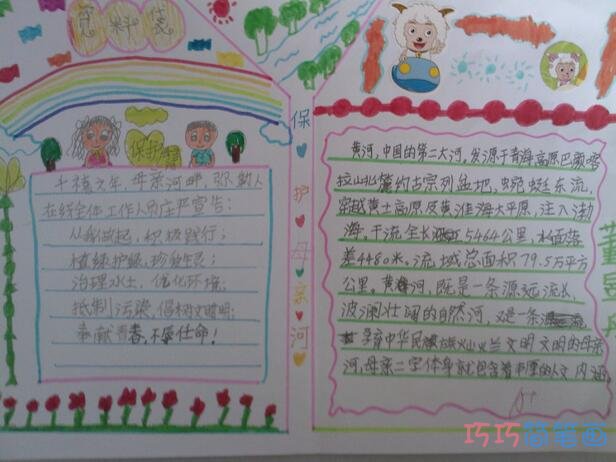 保护
千禧之年，母亲河畔，
在线全体工作人员庄严宣告：
从我做起，积极践行；
植绿护绿，珍爱生灵；
治理水土，优化环境；
抵制污染，倡树文明；
奉献青春，不辱使命！
保护母亲河
黄河，中国的第二大河，发源于青海高原巴颜
拉山北麓约古宗列盆地，蜿蜒东流，
穿越黄土高原及黄淮海大平原，注入渤
海，干流全长5464公里，水面落
差4480米，流域总面积79.5万平方
公里。黄河，既是一条源远流长，
波澜壮阔的自然河，又是一条
孕育中华民族灿烂文明 文明的母亲
河，母亲二字体身就包含着丰厚的人文 内涵
巧巧简笔画